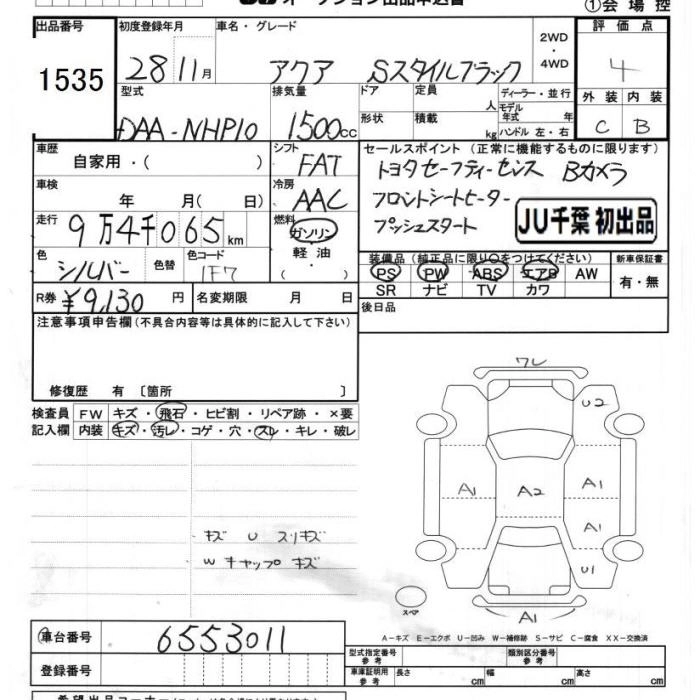 オークション出品申込書
①会場控
出品番号 初度登録年月 車名・グレード 2WD・4WD 評価点
1535 28 11月 アクア Sスタイルブラック 4
型式 排気量 ドア 定員 人 ディーラー・並行 外装 内装
DAA-NHP10 1500cc 形状 積載 kg モデル年式 年 ハンドル 左・右 C B
車歴 シフト セールスポイント (正常に機能するものに限ります)
自家用・( ) FAT トヨタセーフティーセンス Bカメラ
車検 冷房 フロントシートヒーター
年 月( 日) AAC プッシュスタート
JU千葉 初出品
走行 燃料
9万4千065km ガソリン・軽油・
色 色替 色コード 装備品 (純正品に限り○をつけてください) 新車保証書
シルバー 1F7 PS PW ABS エアB AW 有・無
SR ナビ TV カワ
R券 ¥9,130 円 名変期限 月 日 後日品
注意事項申告欄 (不具合内容等は具体的に記入して下さい)
修復歴 有 〔箇所 〕
検査員 FW キズ・飛石・ヒビ割・リペア跡・×要
記入欄 内装 キズ・汚レ・コゲ・穴・スレ・キレ・破レ
ワレ
U2
A1 A2 A1
A1
U1
キズ U スリキズ
W キャップ キズ
スペア
A1
A-キズ E-エクボ U-凹み W-補修跡 S-サビ C-腐食 XX-交換済
車台番号 6553011 型式指定番号 参考 類別区分番号 参考
登録番号 車庫証明用 参考 長さ cm 幅 cm 高さ cm